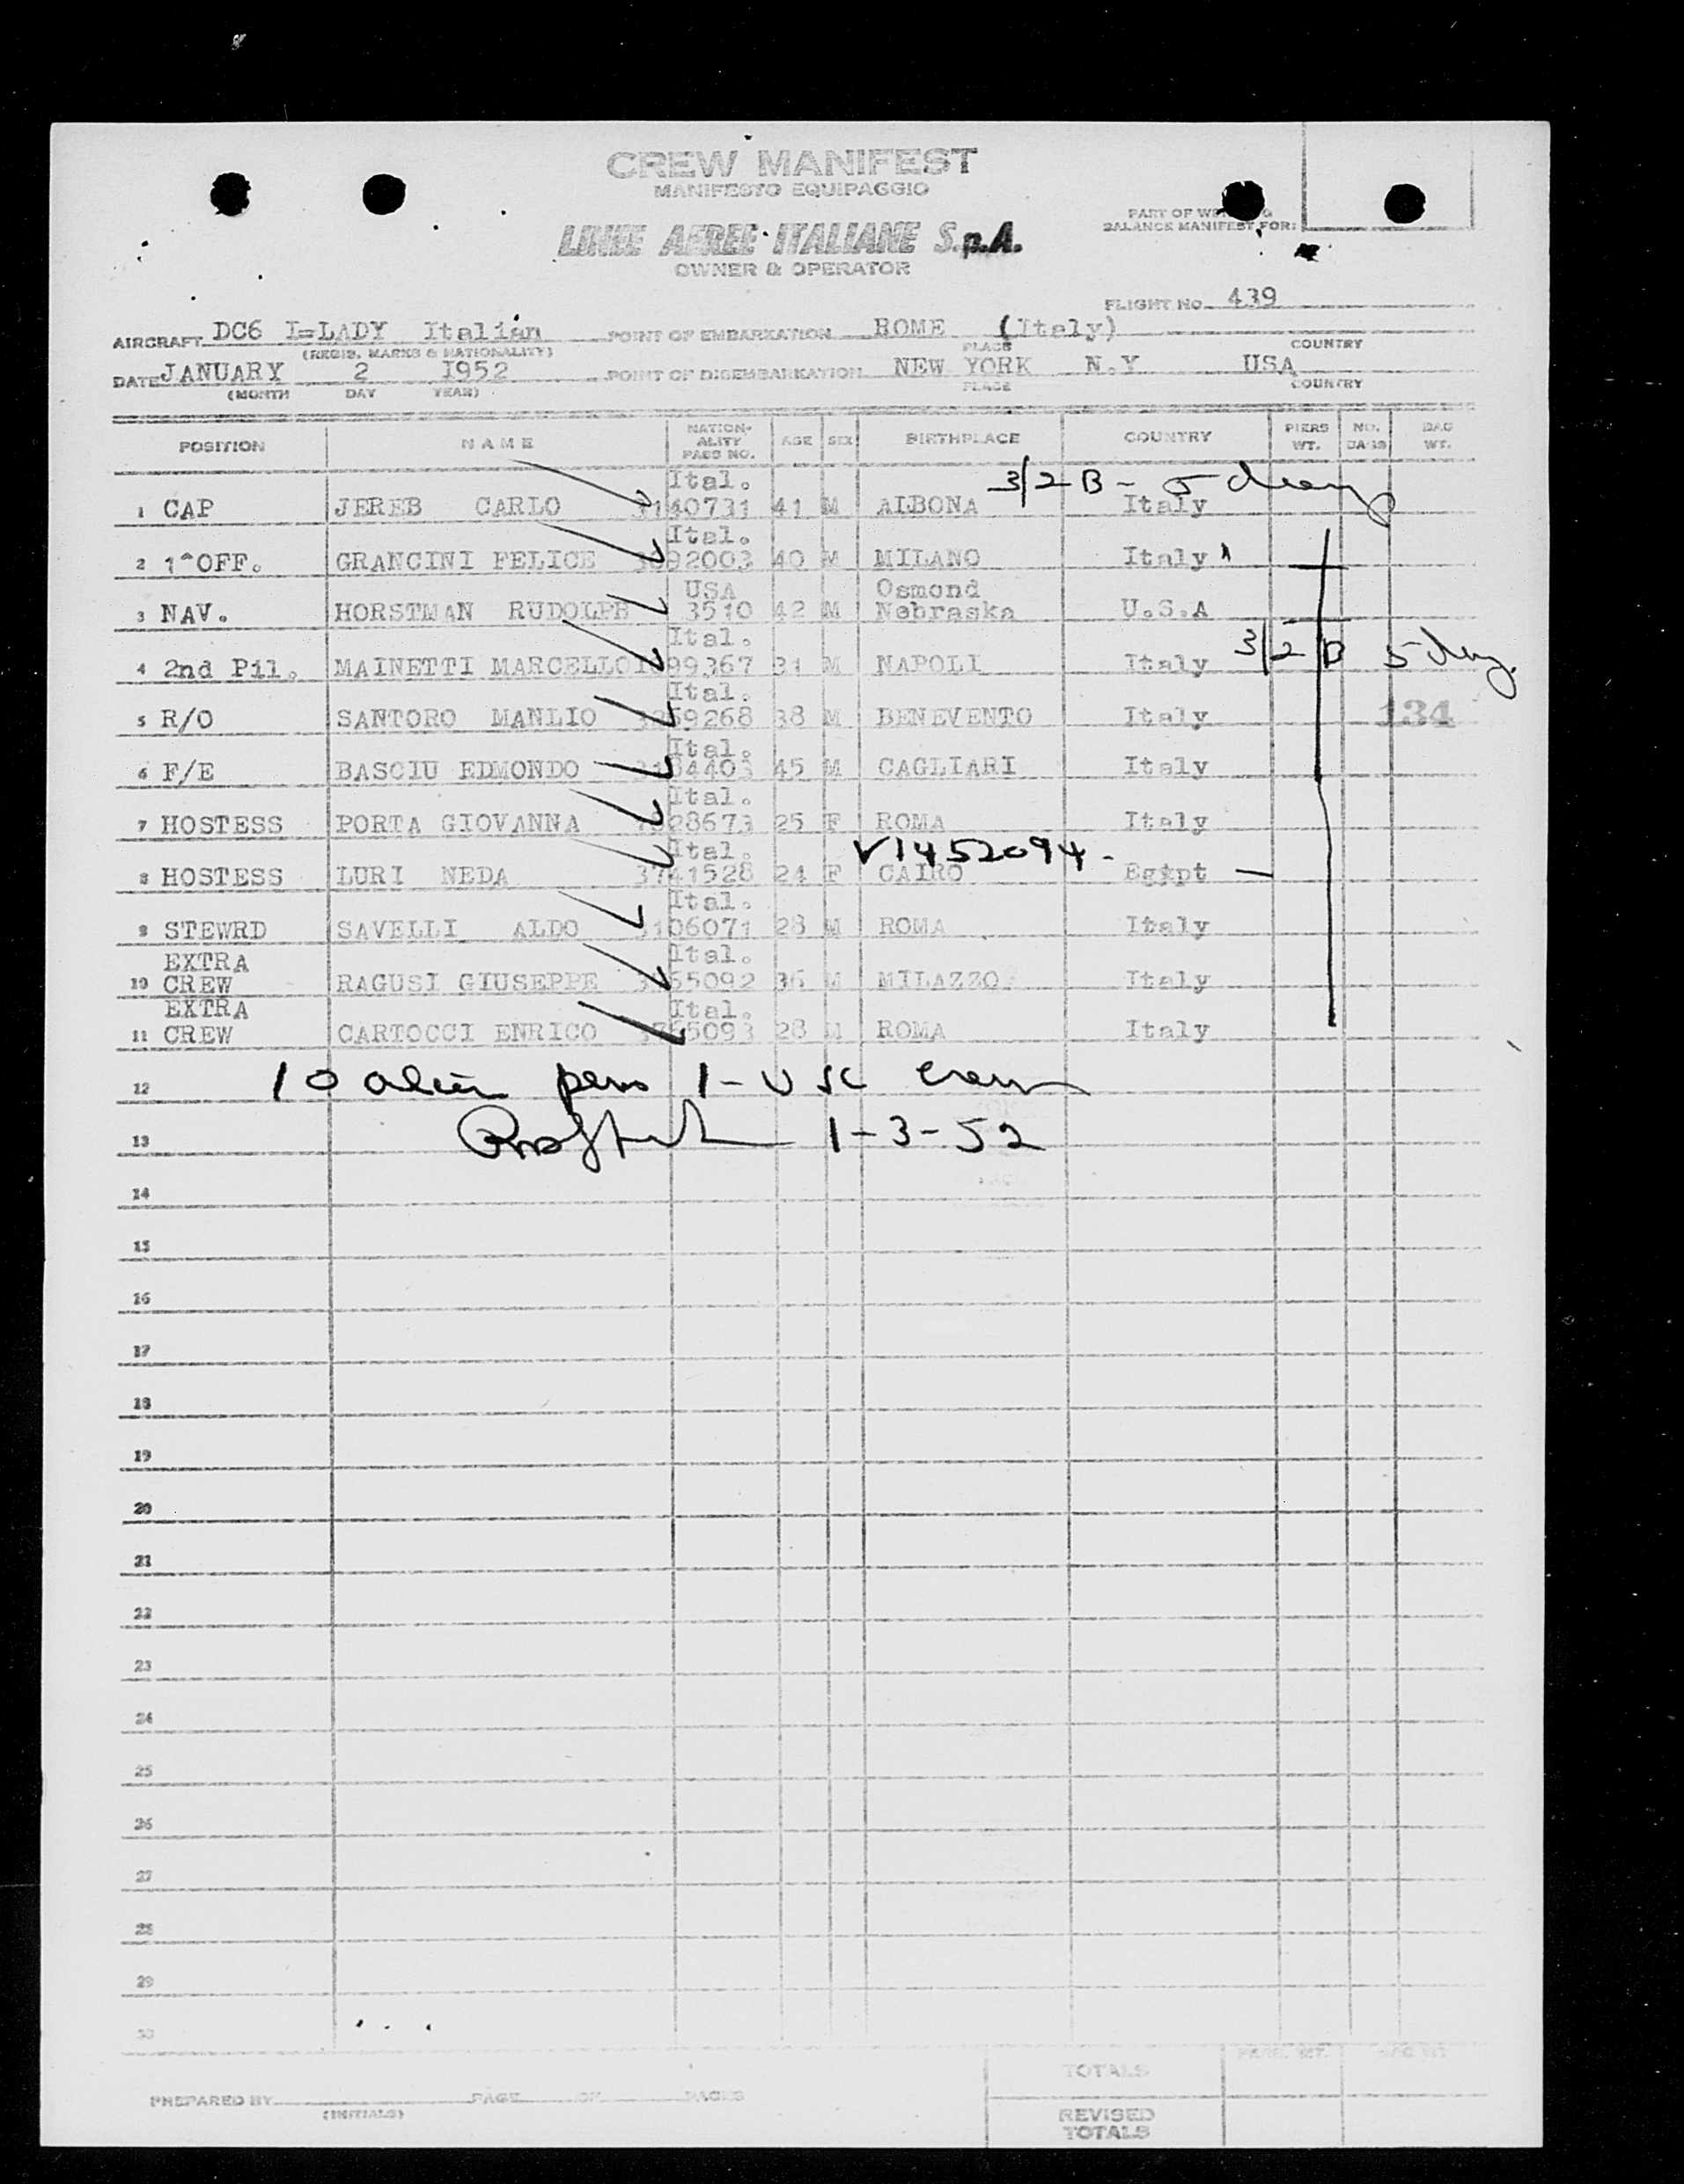 CREW MANIFEST
MANIFESTO EQUIPAGGIO
LINEE AEREE ITALIANE S.p.A.
OWNER & OPERATOR
PART OF
BALANCE MANIFEST FOR:
FLIGHT No. 439
AIRCRAFT DC6 I=LADY Italian POINT OF EMBARKATION ROME (Italy)
(REGIS. MARKS & NATIONALITY) PLACE COUNTRY
DATE JANUARY 2 1952 POINT OF DISEMBARKATION NEW YORK N.Y USA
(MONTH DAY YEAR) PLACE COUNTRY
POSITION NAME NATION-ALITY PASS NO. AGE SEX BIRTHPLACE COUNTRY PIERS WT. NO. WT.
3/2 B -
Ital.
1 CAP JEREB CARLO 3140731 41 M ALBONA Italy
Ital.
2 1^OFF. GRANCINI FELICE 92003 40 M MILANO Italy
USA Osmond
3 NAV. HORSTMAN RUDOLPH 3510 42 M Nebraska U.S.A
Ital.
4 2nd Pil. MAINETTI MARCELLO 99367 31 M NAPOLI Italy 3/2 B 5
Ital.
5 R/O SANTORO MANLIO 59268 38 M BENEVENTO Italy 134
Ital.
6 F/E BASCIU EDMONDO 45 M CAGLIARI Italy
Ital.
7 HOSTESS PORTA GIOVANNA 28673 25 F ROMA Italy
Ital. V1452094-
8 HOSTESS LURI NEDA 3741528 24 F CAIRO Egipt
Ital.
9 STEWRD SAVELLI ALDO 3106071 28 M ROMA Italy
EXTRA Ital.
10 CREW RAGUSI GIUSEPPE 55092 36 M MILAZZO Italy
EXTRA Ital.
11 CREW CARTOCCI ENRICO 5093 28 M ROMA Italy
12 10 alien pers 1-USC crew
13 1-3-52
14
15
16
17
18
19
20
21
22
23
24
25
26
27
28
29
30
TOTALS
PREPARED BY PAGE OF PAGES
(INITIALS)
REVISED
TOTALS